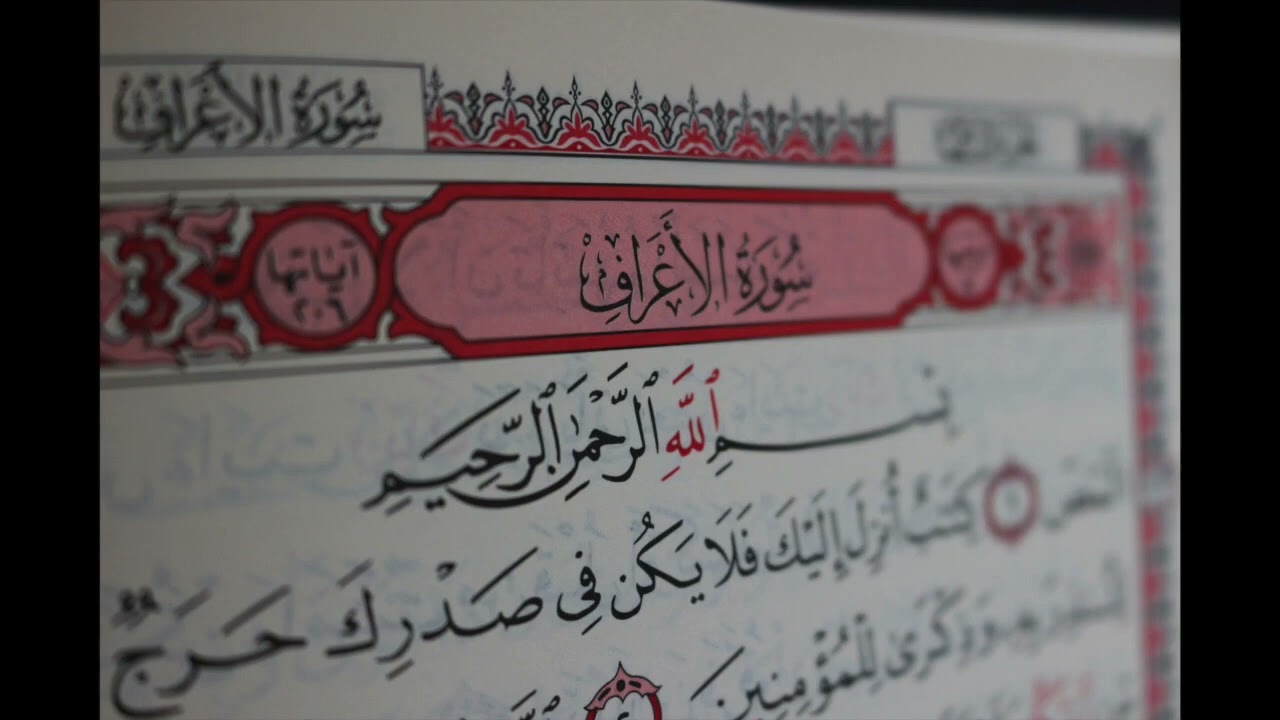 سُورَةُ الأَعْرَافِ
سُورَةُ الأَعْرَافِ
آياتها
٢٠٦
بِسْمِ ٱللَّهِ ٱلرَّحْمَٰنِ ٱلرَّحِيمِ
الٓمٓصٓ ١ كِتَٰبٌ أُنزِلَ إِلَيْكَ فَلَا يَكُن فِى صَدْرِكَ حَرَجٌ
وَذِكْرَىٰ لِلْمُؤْمِنِينَ